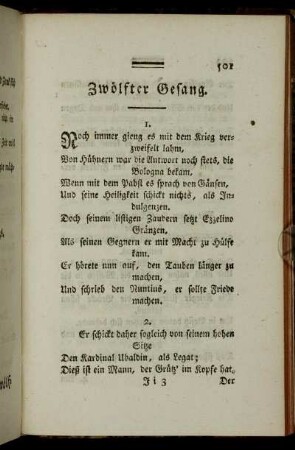 501
Zwölfter Gesang.
1.
Noch immer gieng es mit dem Krieg ver-
zweifelt lahm,
Von Hühnern war die Antwort noch stets, die
Bologna bekam,
Wenn mit dem Pabst es sprach von Gänsen,
Und seine Heiligkeit schickt nichts, als In-
dulgenzen.
Doch seinem listigen Zaudern setzt Ezzelino
Gränzen,
Als seinen Gegnern er mit Macht zu Hülfe
kam.
Er hörete nun auf, den Tauben länger zu
machen,
Und schrieb den Nuntius, er sollte Friede
machen.
2.
Er schickt daher sogleich von seinem hohen
Sitze
Den Kardinal Ubaldin, als Legat;
Dieß ist ein Mann, der Grütz' im Kopfe hat,
Ji 3
Der